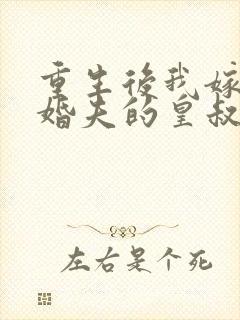 重生後我嫁
婚夫的皇叔
左右是个死